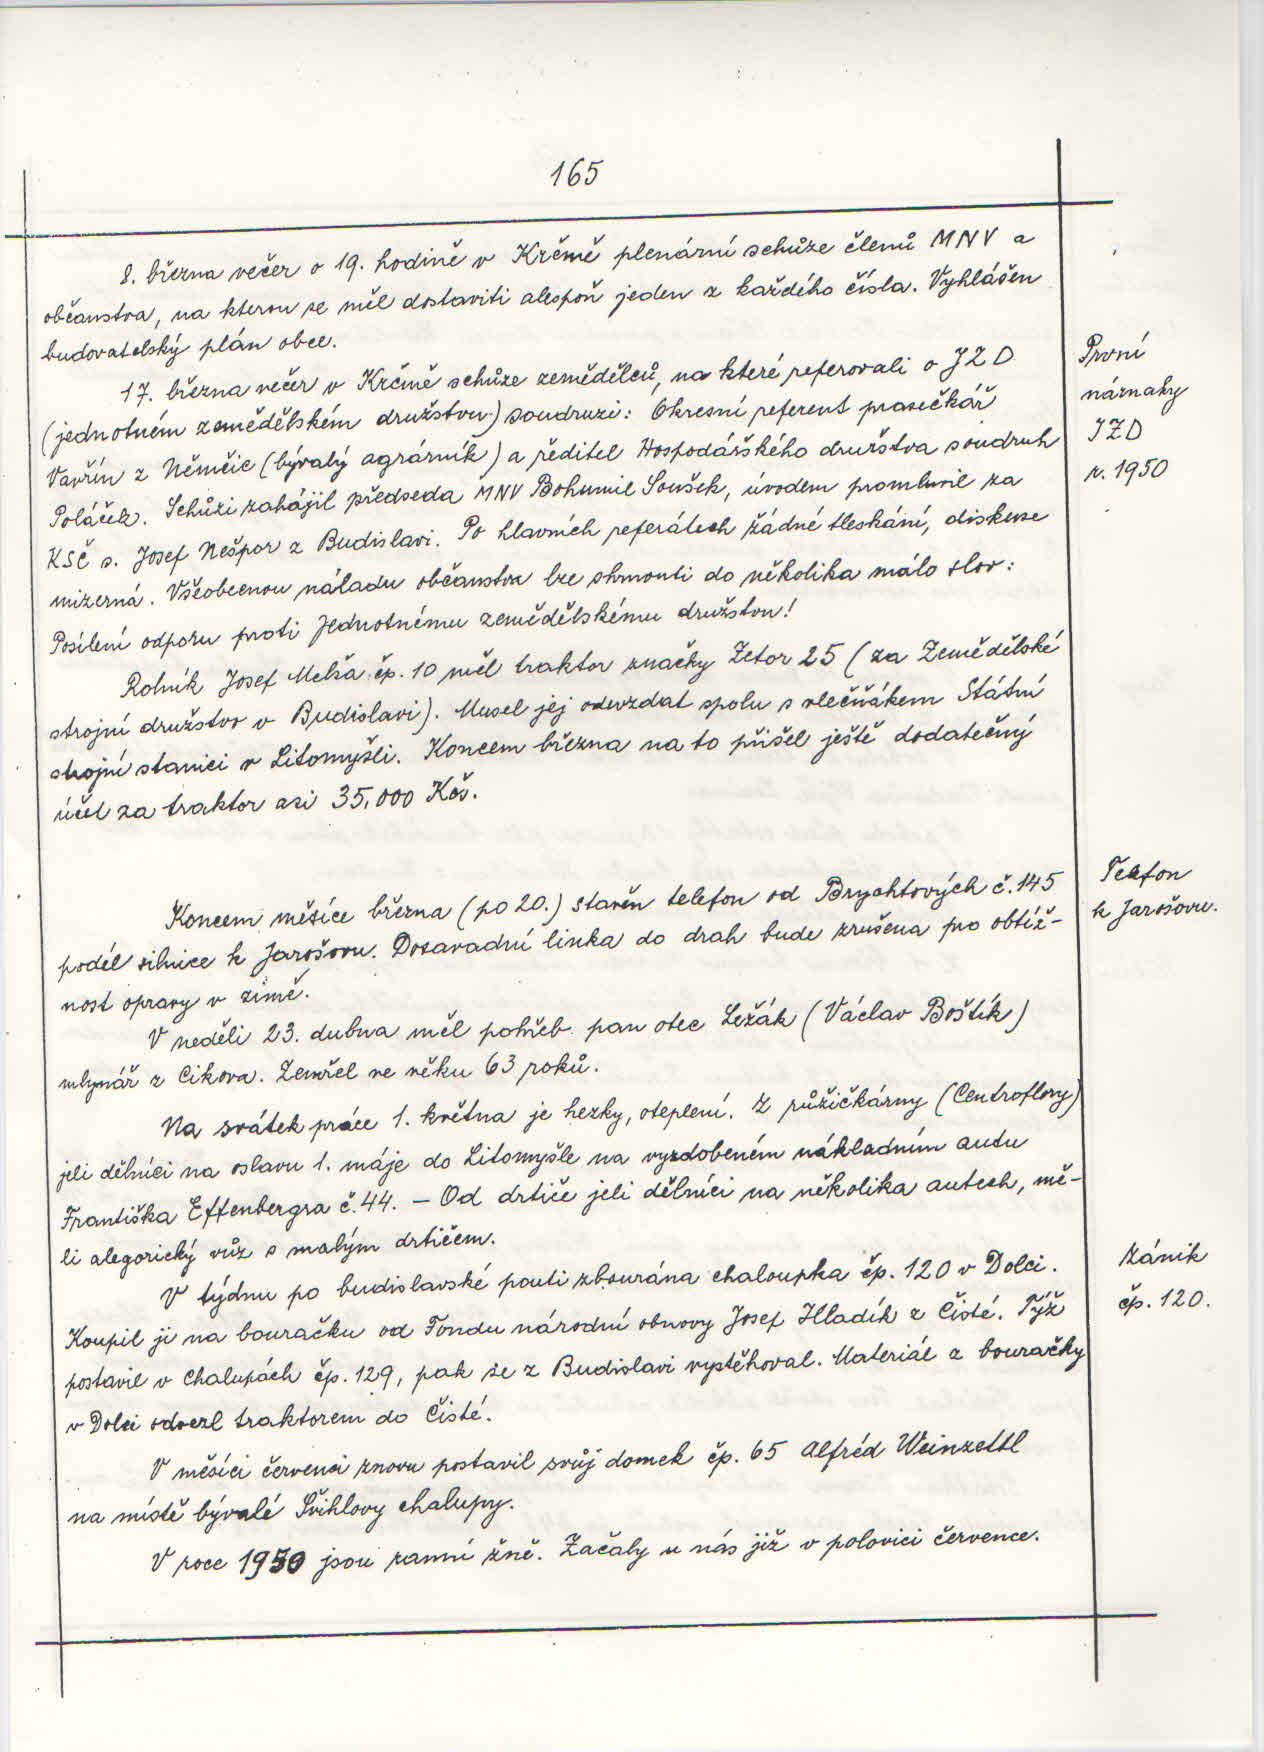 165
8. března večer o 19. hodině v Krčmě plenární schůze členů MNV a
občanstva, na kterou se měl dostaviti alespoň jeden z každého čísla. Vyhlášen
budovatelský plán obce.
17. března večer v Krčmě schůze zemědělců, na které referovali o JZD
(jednotném zemědělském družstvu) soudruzi: Okresní referent prasečkář
Vavřín z Němčic (bývalý agrárník) a ředitel Hospodářského družstva soudruh
Poláček. Schůzi zahájil předseda MNV Bohumil Soušek, úvodem promluvil za
KSČ s. Josef Nešpor z Budislavi. Po hlavních referátech žádné tleskání, diskuse
mizerná. Všeobecnou náladu občanstva lze shrnouti do několika málo slov:
Posílení odporu proti Jednotnému zemědělskému družstvu!
První
náznaky
JZD
r. 1950
Rolník Josef Melša čp. 10 měl traktor značky Zetor 25 (za Zemědělské
strojní družstvo v Budislavi). Musel jej odevzdat spolu s vlečňákem Státní
strojní stanici v Litomyšli. Koncem března na to přišel ještě dodatečný
účet za traktor asi 35.000 Kčs.
Koncem měsíce března (po 20.) stavěn telefon od Brychtových č. 145
podél silnice k Jarošovu. Dosavadní linka do drah bude zrušena pro obtíž-
nost opravy v zimě.
Telefon
k Jarošovu.
V neděli 23. dubna měl pohřeb pan otec Ležák (Václav Boštík)
mlynář z Cikova. Zemřel ve věku 63 roků.
Na svátek práce 1. května je hezky, oteplení. Z růžičkárny (Centroflory)
jeli dělníci na oslavu 1. máje do Litomyšle na vyzdobeném nákladním autu
Františka Effenbergra č. 44. – Od drtiče jeli dělníci na několika autech, mě-
li alegorický vůz s malým drtičem.
V týdnu po budislavské pouti zbourána chaloupka čp. 120 v Dolci.
Koupil ji na bouračku od Fondu národní obnovy Josef Hladík z Čisté. Týž
postavil v Chalupách čp. 129, pak se z Budislavi vystěhoval. Materiál z bouračky
v Dolci odvezl traktorem do Čisté.
Zánik
čp. 120.
V měsíci červenci znovu postavil svůj domek čp. 65 Alfréd Weinzettl
na místě bývalé Švihlovy chalupy.
V roce 1950 jsou ranní žně. Začaly u nás již v polovici července.